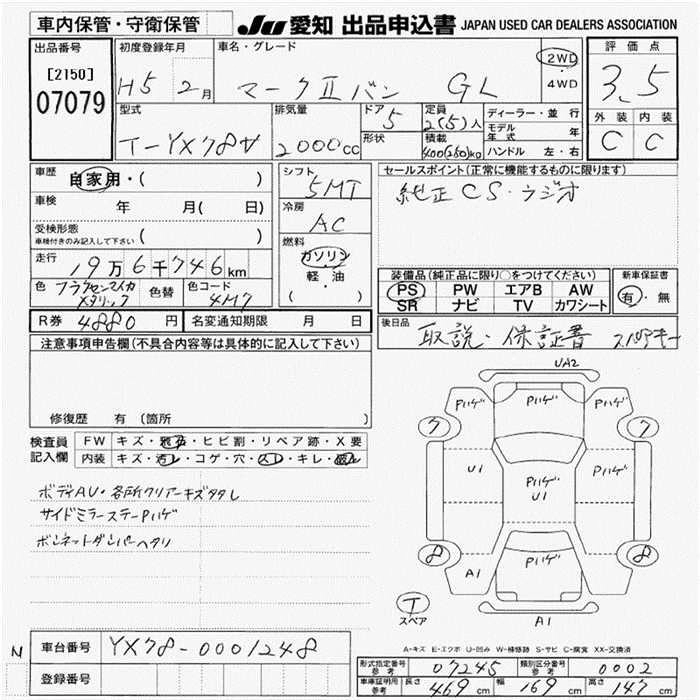 車内保管・守衛保管
JU 愛知 出品申込書 JAPAN USED CAR DEALERS ASSOCIATION
出品番号
[2150]
07079
初度登録年月
H5 2月
車名・グレード
マークⅡバン GL
2WD
・
4WD
評価点
3.5
外装 内装
C C
型式
T-YX78V
排気量
2000cc
ドア
5
形状
定員
2(5)人
積載
400(250)kg
ディーラー・並行
モデル年式 年
ハンドル 左・右
車歴
自家用・( )
車検 年 月( 日)
受検形態
車検付きのみ記入して下さい ( )
走行 19万6千746km
色
色替
色コード
4M7
シフト
5MT
冷房
AC
燃料
ガソリン
・
軽・油
( )
セールスポイント(正常に機能するものに限ります)
純正CS・ラジオ
装備品(純正品に限り○をつけてください)
PS PW エアB AW
SR ナビ TV カワシート
新車保証書
有・無
R券 4880円 名変通知期限 月 日
後日品
取説・保証書 スペアキー
注意事項申告欄(不具合内容等は具体的に記入して下さい)
修復歴 有(箇所
検査員記入欄
FW キズ・飛石・ヒビ割・リペア跡・X要
内装 キズ・汚レ・コゲ・穴・スレ・キレ・
ボディAU・各所クリアーキズタタレ
サイドミラーステーPハゲ
ボンネットダンパーヘタリ
UA2
Pハゲ Pハゲ Pハゲ
ワ ワ
U1 Pハゲ U1 Pハゲ
8 8
A1 Pハゲ
T
スペア
A1
A-キズ E-エクボ U-凹み W-補修跡 S-サビ C-腐食 XX-交換済
N
車台番号 YX78-0001248
登録番号
形式指定番号 参考 07245 類別区分番号 参考 0002
車庫証明用 参考 長さ 469cm 幅 169cm 高さ 147cm